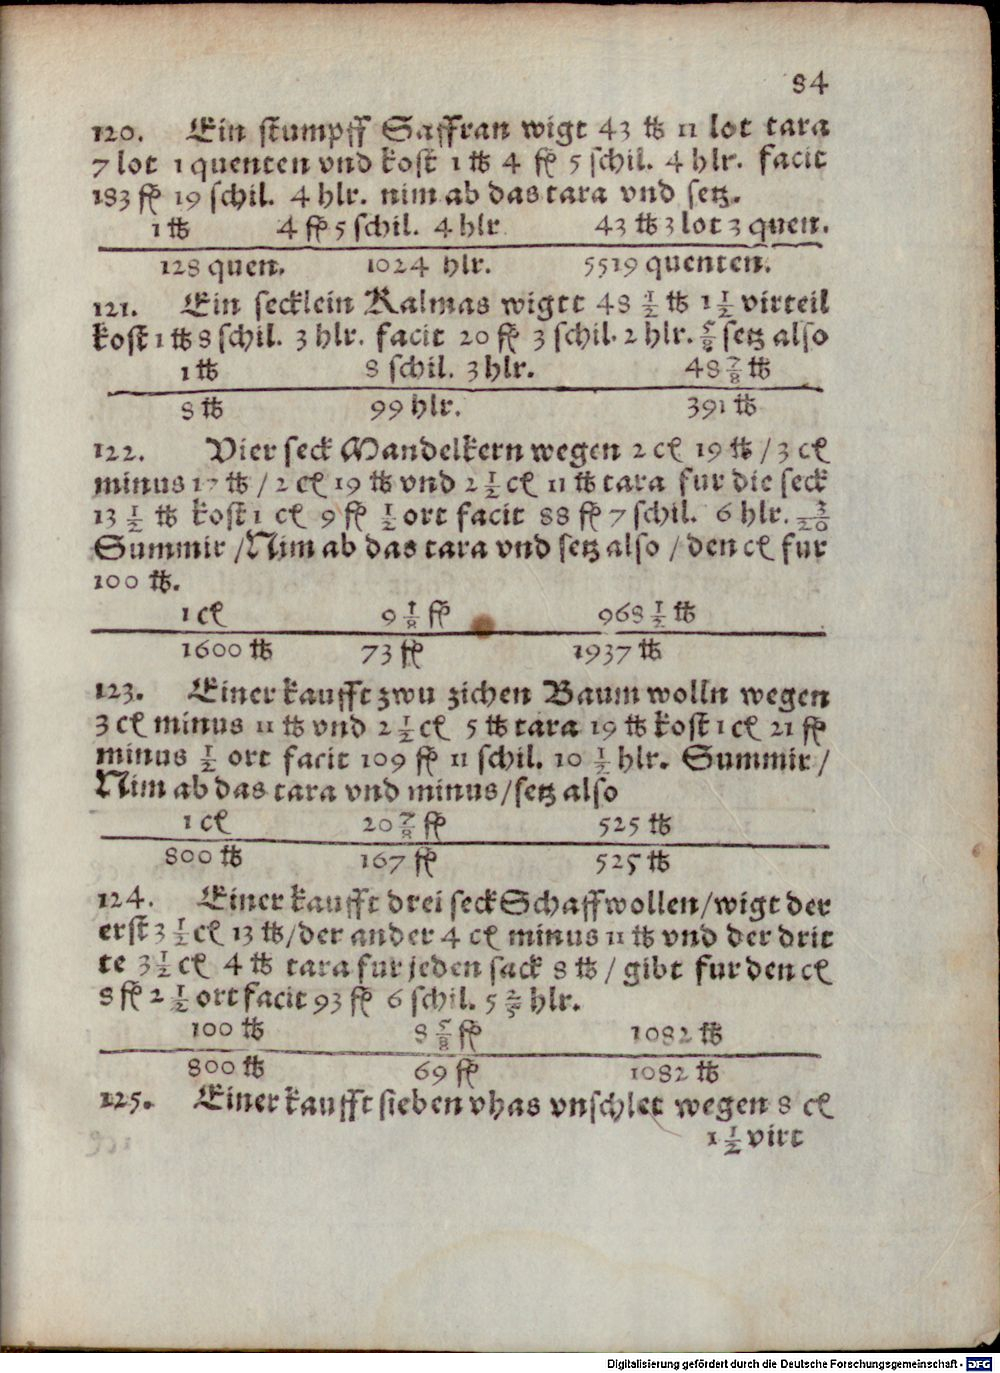 84
120. Ein stumpff Saffran wigt 43 ℔ 11 lot tara
7 lot 1 quenten vnd kost 1 ℔ 4 fl 5 schil. 4 hlr. facit
183 fl 19 schil. 4 hlr. nim ab das tara vnd setz.
1 ℔ 4 fl 5 schil. 4 hlr 43 ℔ 3 lot 3 quen.
128 quen. 1024 hlr. 5519 quenten.
121. Ein secklein Kalmas wigtt 48 1/2 ℔ 1 1/2 virteil
kost 1 ℔ 8 schil. 3 hlr. facit 20 fl 3 schil. 2 hlr. 5/8 setz also
1 ℔ 8 schil. 3 hlr. 48 7/8 ℔
8 ℔ 99 hlr. 391 ℔
122. Vier seck Mandelkern wegen 2 cł 19 ℔ / 3 cł
minus 17 ℔ / 2 cł 19 ℔ vnd 2 1/2 cł 11 ℔ tara fur die seck
13 1/2 ℔ kost 1 cł 9 fl 1/2 ort facit 88 fl 7 schil. 6 hlr. 3/20
Summir / Nim ab das tara vnd setz also / den cł fur
100 ℔.
1 cł 9 1/8 fl 968 1/2 ℔
1600 ℔ 73 fl 1937 ℔
123. Einer kaufft zwu zichen Baum wolln wegen
3 cł minus 11 ℔ vnd 2 1/2 cł 5 ℔ tara 19 ℔ kost 1 cł 21 fl
minus 1/2 ort facit 109 fl 11 schil. 10 1/2 hlr. Summir /
Nim ab das tara vnd minus / setz also
1 cł 20 7/8 fl 525 ℔
800 ℔ 167 fl 525 ℔
124. Einer kaufft drei seck Schaffwollen / wigt der
erst 3 1/2 cł 13 ℔ / der ander 4 cł minus 11 ℔ vnd der drit
te 3 1/2 cł 4 ℔ tara fur jeden sack 8 ℔ / gibt fur den cł
8 fl 2 1/2 ort facit 93 fl 6 schil. 5 2/5 hlr.
100 ℔ 8 5/8 fl 1082 ℔
800 ℔ 69 fl 1082 ℔
125. Einer kaufft sieben vhas vnschlet wegen 8 cł
1 1/2 virt
Digitalisierung gefördert durch die Deutsche Forschungsgemeinschaft - DFG